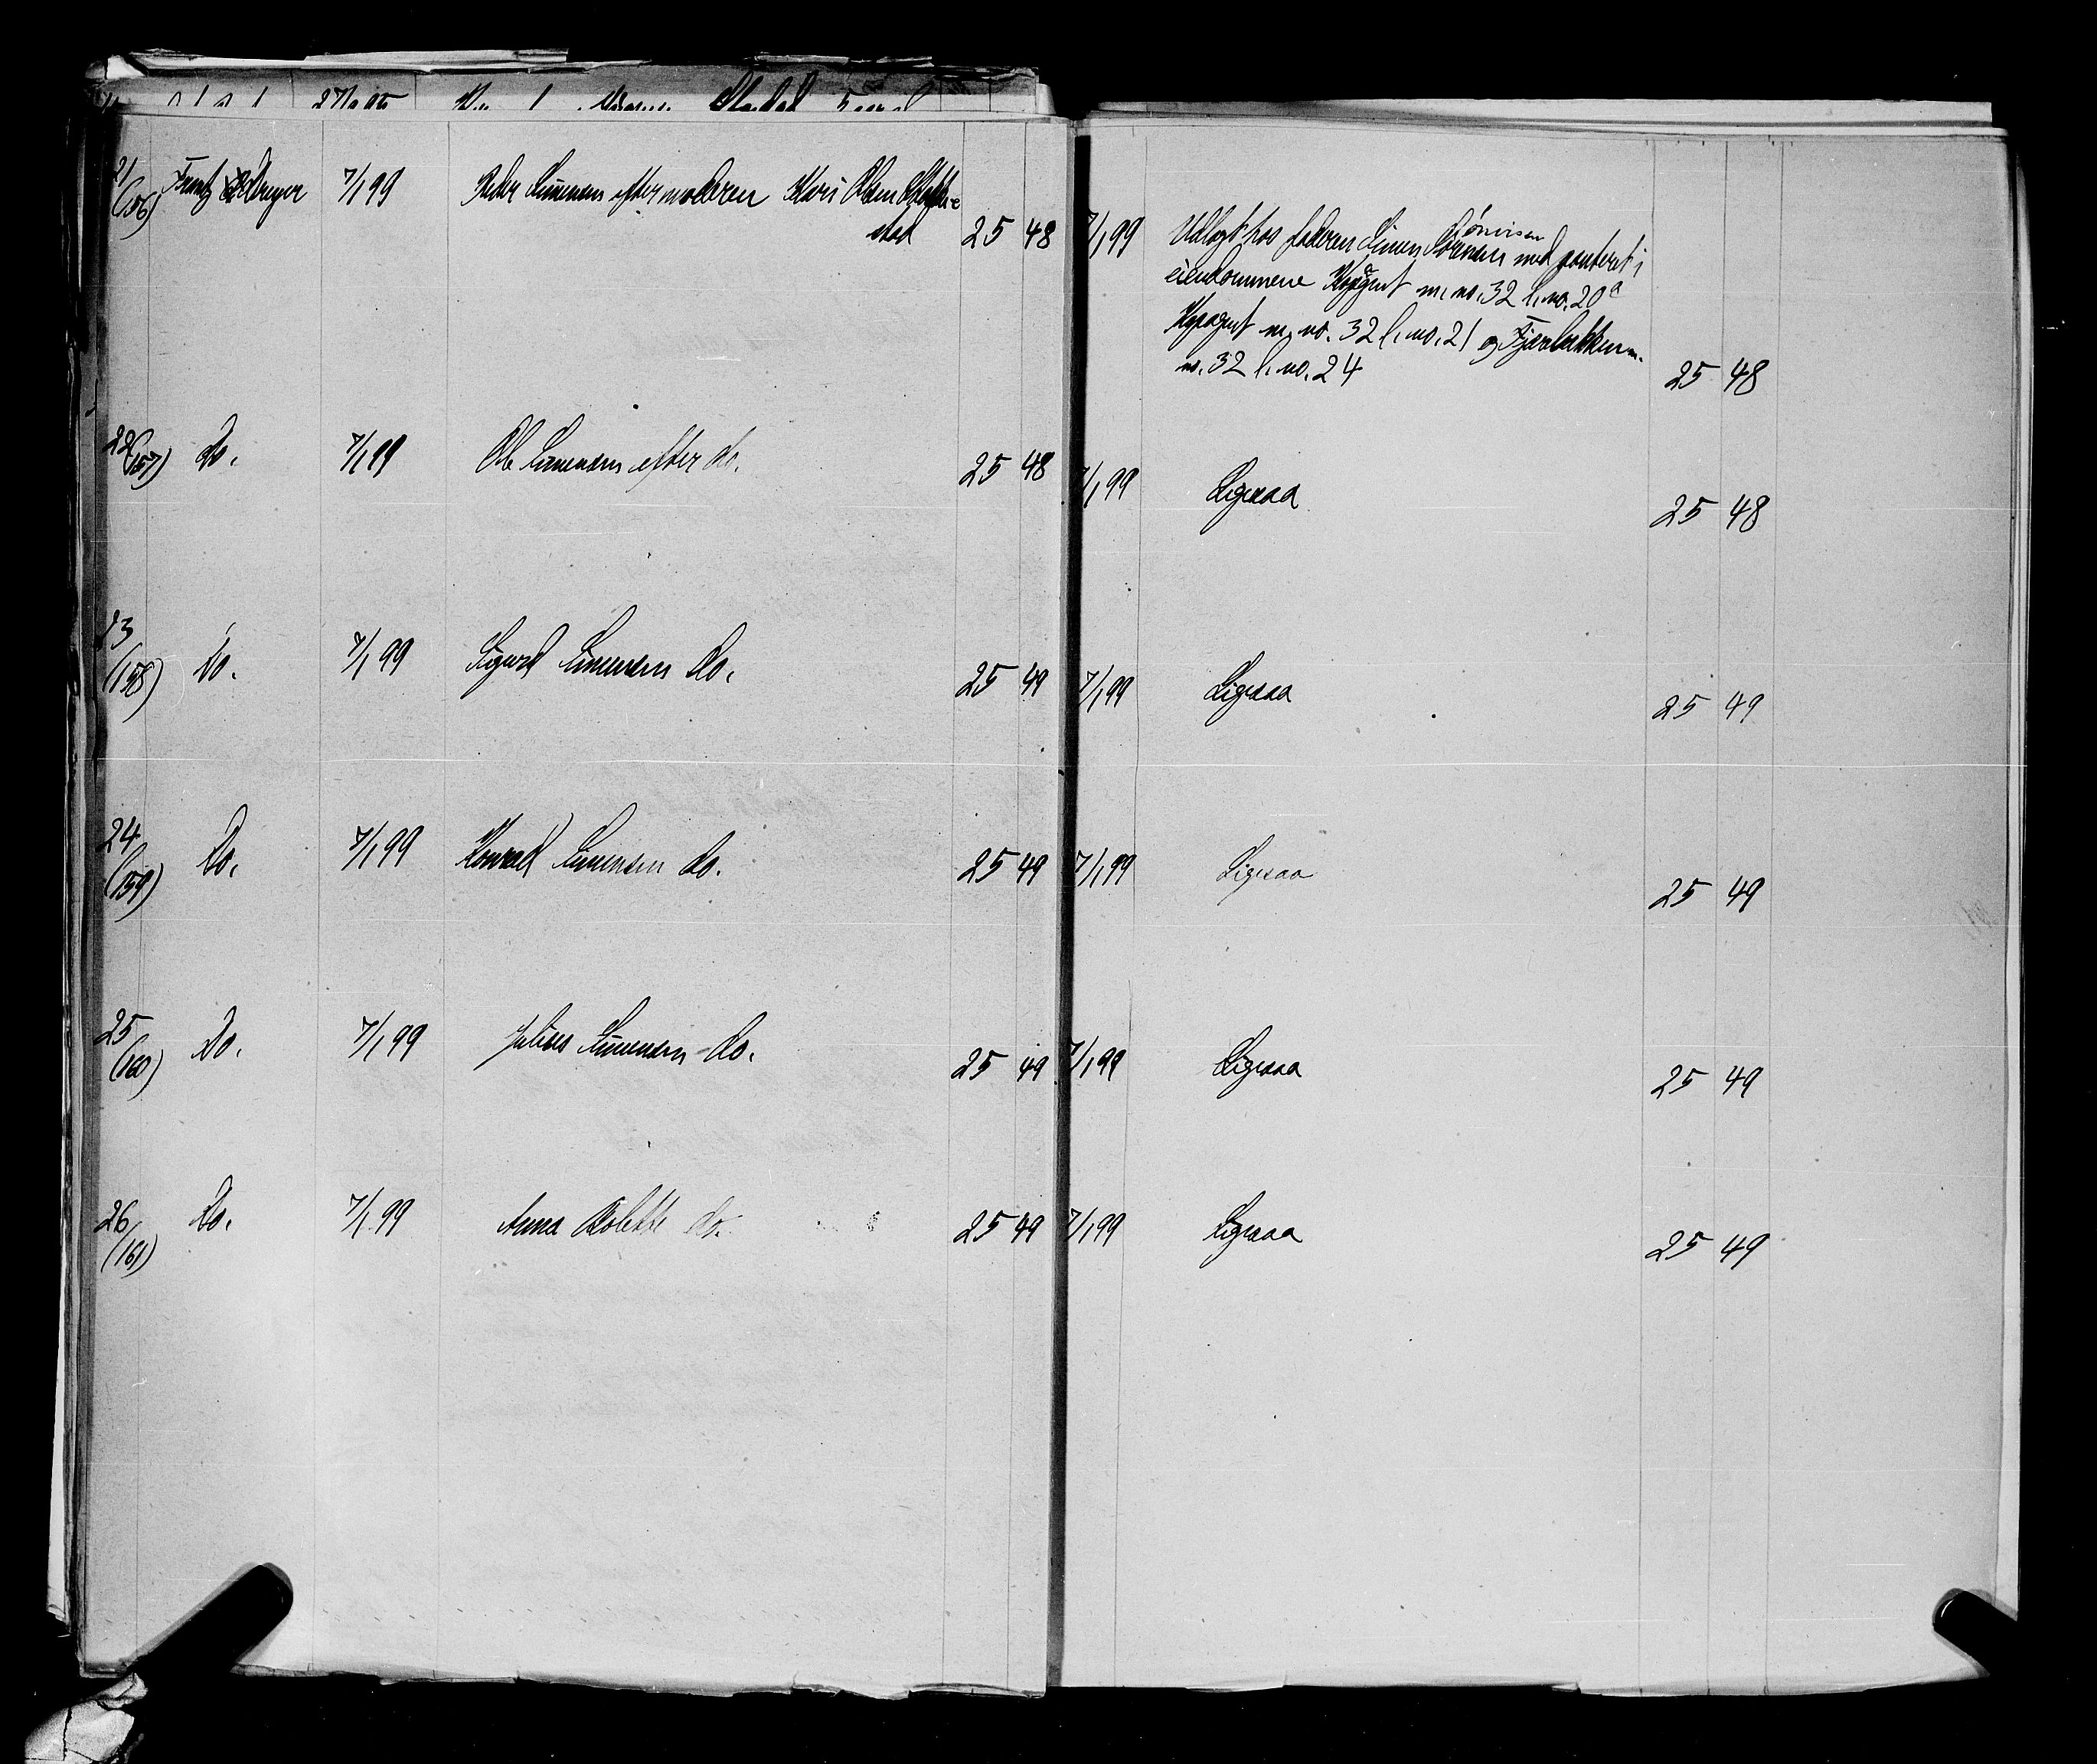 21 Frantz Dreyer 7/1 99 Peder Simensen efter moderen Kari Olsen
(156) stad 25 48
7/1 99 Udlagt hos faderen Simen Sörensen mod panteret i
eiendommene m. no. 32 l. no. 20 a
m. no. 32 l. no. 21 og Fjærbakken m.
no. 32 l. no. 24 25 48
22 (157) Do. 7/1 99 Ole Simensen efter do. 25 48
7/1 99 Ligesaa 25 48
23 (158) Do. 7/1 99 Sigurd Simensen do. 25 49
7/1 99 Ligesaa 25 49
24 (159) Do. 7/1 99 Konrad Simensen do. 25 49
7/1 99 Ligesaa 25 49
25 (160) Do. 7/1 99 Julius Simensen do. 25 49
7/1 99 Ligesaa 25 49
26 (161) Do. 7/1 99 Anna Bolette do. 25 49
7/1 99 Ligesaa 25 49